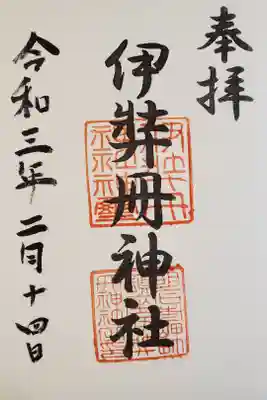 奉拝
伊弉冊神社
令和三年二月十四日